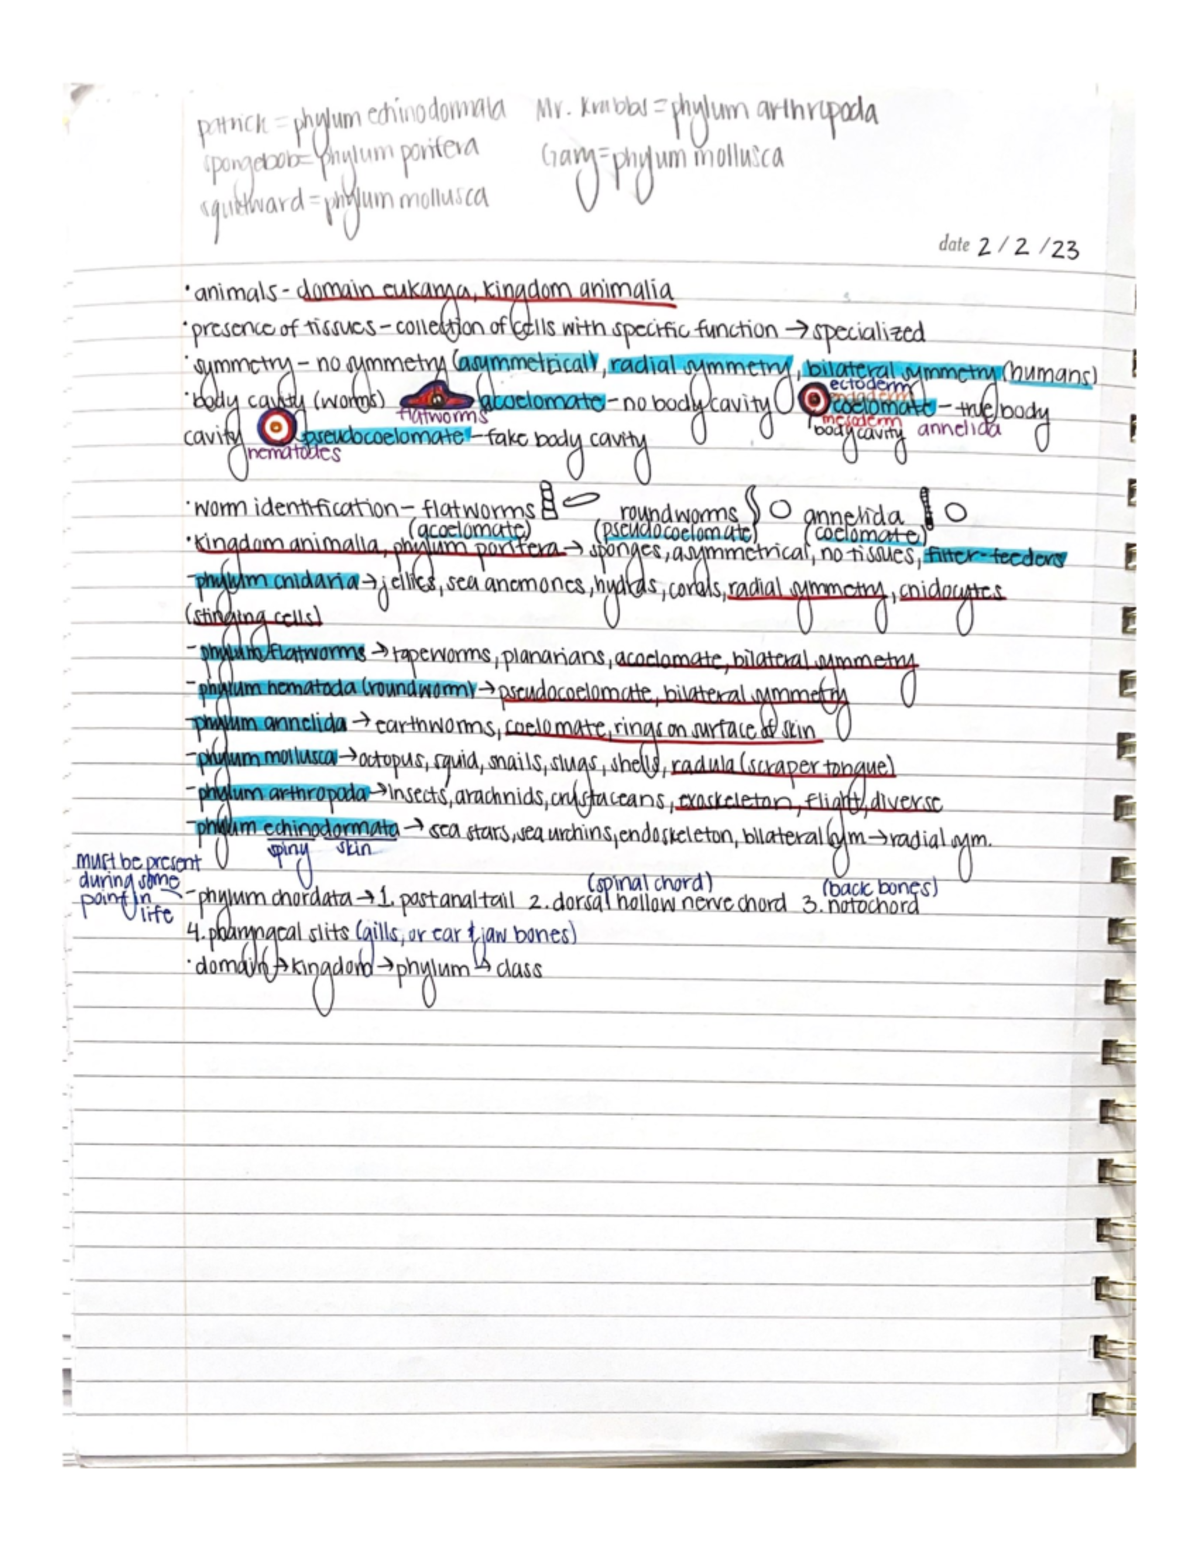 patrick = phylum echinodormata   Mr. Krabbs = phylum arthropoda
spongebob = phylum porifera   Gary = phylum mollusca
squidward = phylum mollusca
date 2/2/23
• animals - domain eukarya, kingdom animalia
• presence of tissues - collection of cells with specific function → specialized
• symmetry - no symmetry (asymmetrical), radial symmetry, bilateral symmetry (humans)
ectoderm
endoderm
• body cavity (worms) acoelomate - no body cavity coelomate - true body
flatworms mesoderm
body cavity annelida
cavity pseudocoelomate - fake body cavity
nematodes
• worm identification - flatworms roundworms annelida
(acoelomate) (pseudocoelomate) (coelomate)
• kingdom animalia, phylum porifera → sponges, asymmetrical, no tissues, filter-feeders
- phylum cnidaria → jellies, sea anemones, hydras, corals, radial symmetry, cnidocytes
(stinging cells)
- phylum flatworms → tapeworms, planarians, acoelomate, bilateral symmetry
- phylum nematoda (roundworm) → pseudocoelomate, bilateral symmetry
- phylum annelida → earthworms, coelomate, rings on surface of skin
- phylum mollusca → octopus, squid, snails, slugs, shells, radula (scraper tongue)
- phylum arthropoda → insects, arachnids, crustaceans, exoskeleton, flight, diverse
- phylum echinodormata → sea stars, sea urchins, endoskeleton, bilateral sym → radial sym.
spiny skin
must be present
during some
point in
life
(spinal chord) (back bones)
- phylum chordata → 1. postanal tail 2. dorsal hollow nerve chord 3. notochord
4. pharyngeal slits (gills, or ear & jaw bones)
• domain → kingdom → phylum → class